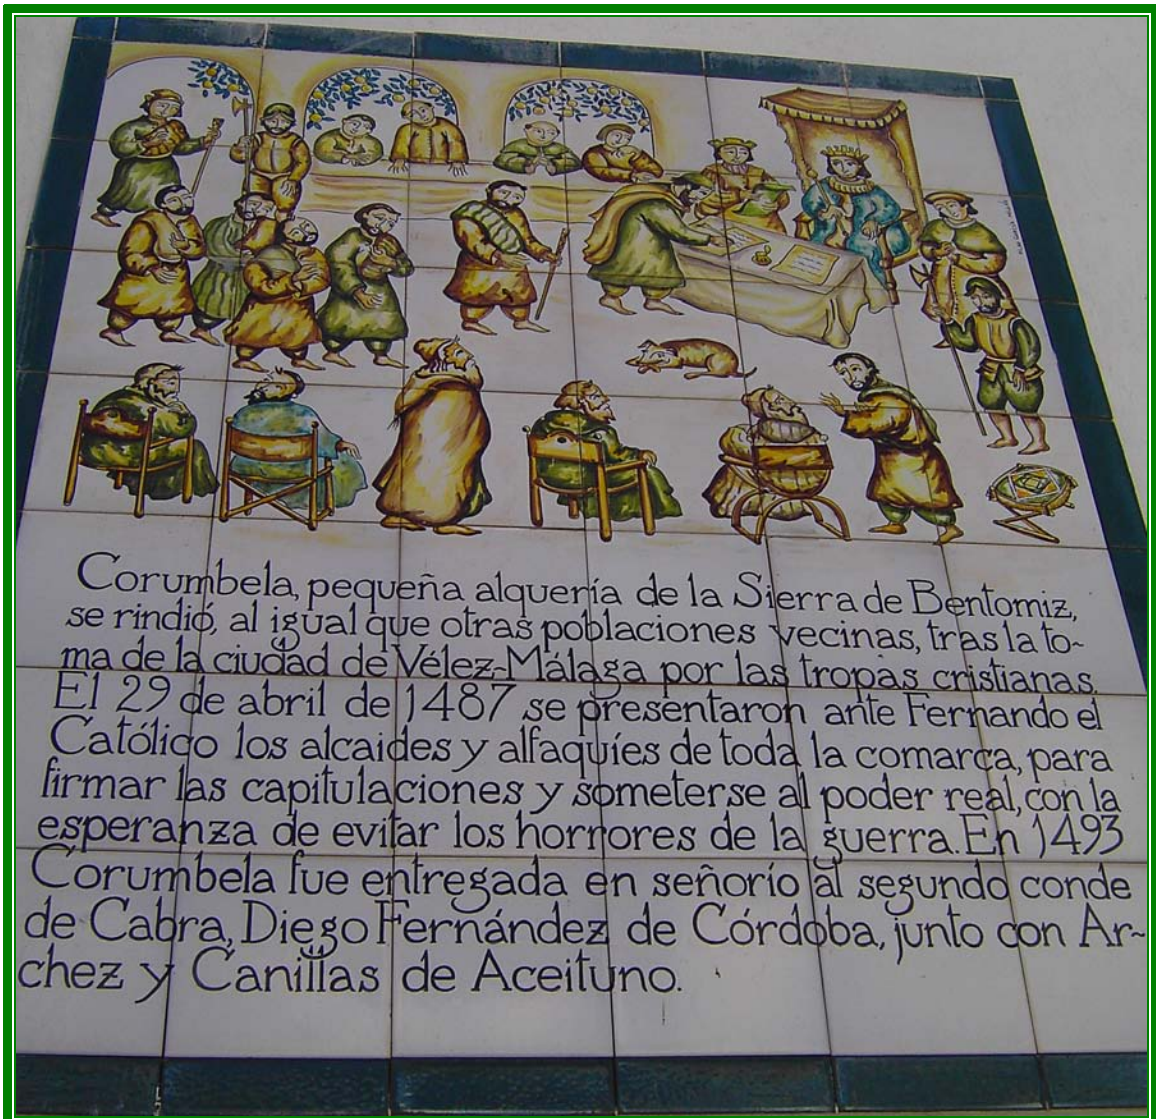 Corumbela, pequeña alquería de la Sierra de Bentomiz,
se rindió, al igual que otras poblaciones vecinas, tras la to-
ma de la ciudad de Vélez-Málaga por las tropas cristianas.
El 29 de abril de 1487 se presentaron ante Fernando el
Católico los alcaides y alfaquíes de toda la comarca, para
firmar las capitulaciones y someterse al poder real, con la
esperanza de evitar los horrores de la guerra. En 1493
Corumbela fue entregada en señorío al segundo conde
de Cabra, Diego Fernández de Córdoba, junto con Ar-
chez y Canillas de Aceituno.